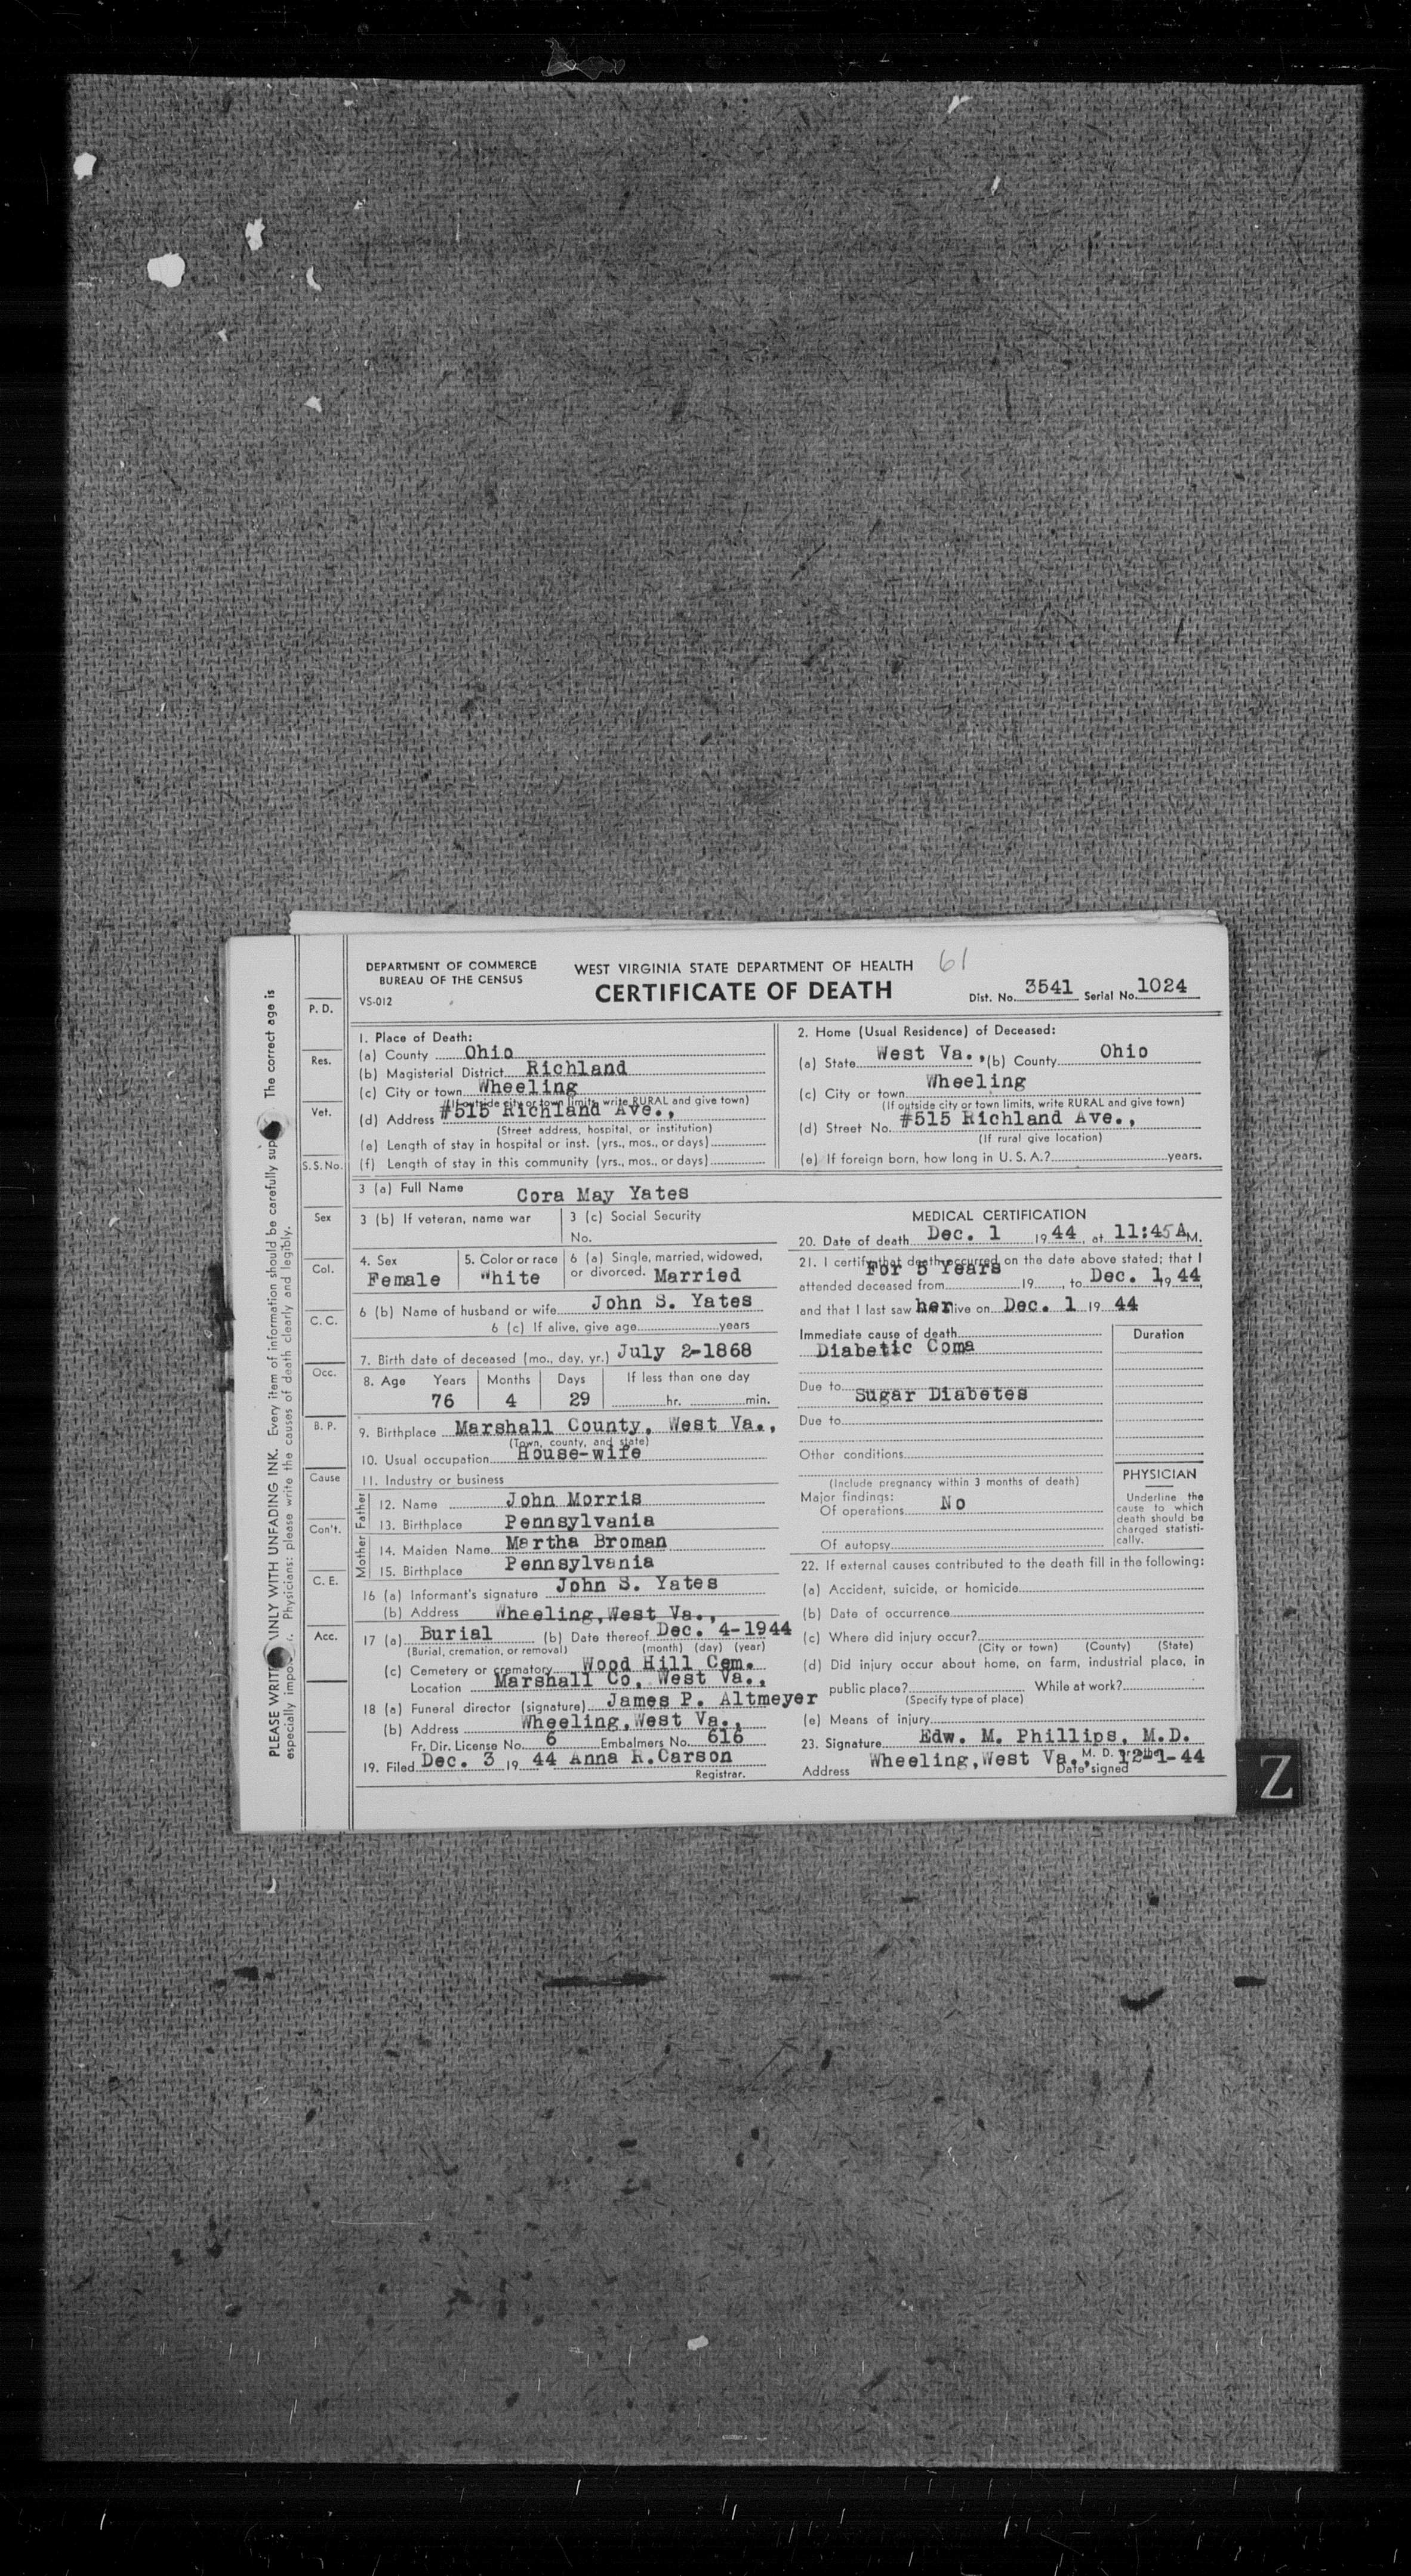 61
DEPARTMENT OF COMMERCE
BUREAU OF THE CENSUS
VS-012
WEST VIRGINIA STATE DEPARTMENT OF HEALTH
CERTIFICATE OF DEATH
Dist. No. 3541 Serial No. 1024
PLEASE WRITE INLY WITH UNFADING INK. Every item of information should be carefully sup The correct age is
especially impo Physicians: please write the causes of death clearly and legibly.
P. D.
Res.
Vet.
S. S. No.
Sex
Col.
C. C.
Occ.
B. P.
Cause
Con't.
C. E.
Acc.
1. Place of Death:
(a) County Ohio
(b) Magisterial District Richland
(c) City or town Wheeling
(If outside city or town limits, write RURAL and give town)
(d) Address #515 Richland Ave.,
(Street address, hospital, or institution)
(e) Length of stay in hospital or inst. (yrs., mos., or days)
(f) Length of stay in this community (yrs., mos., or days)
2. Home (Usual Residence) of Deceased:
(a) State West Va., (b) County Ohio
(c) City or town Wheeling
(If outside city or town limits, write RURAL and give town)
(d) Street No. #515 Richland Ave.,
(If rural give location)
(e) If foreign born, how long in U. S. A.? years.
3 (a) Full Name Cora May Yates
3 (b) If veteran, name war
3 (c) Social Security
No.
4. Sex
Female
5. Color or race
White
6 (a) Single, married, widowed,
or divorced. Married
6 (b) Name of husband or wife John S. Yates
6 (c) If alive, give age years
7. Birth date of deceased (mo., day, yr.) July 2-1868
8. Age Years Months Days If less than one day
76 4 29 hr. min.
9. Birthplace Marshall County, West Va.,
(Town, county, and state)
10. Usual occupation House-wife
11. Industry or business
Father
12. Name John Morris
13. Birthplace Pennsylvania
Mother
14. Maiden Name Martha Broman
15. Birthplace Pennsylvania
16 (a) Informant's signature John S. Yates
(b) Address Wheeling, West Va.,
17 (a) Burial (b) Date thereof Dec. 4-1944
(Burial, cremation, or removal) (month) (day) (year)
(c) Cemetery or crematory Wood Hill Cem.
Location Marshall Co, West Va.,
18 (a) Funeral director (signature) James P. Altmeyer
(b) Address Wheeling, West Va.,
Fr. Dir. License No. 6 Embalmers No. 616
19. Filed Dec. 3 19 44 Anna R. Carson
Registrar.
MEDICAL CERTIFICATION
20. Date of death Dec. 1 19 44, at 11:45 A M.
21. I certify that death occurred on the date above stated; that I
attended deceased from For 5 Years 19 , to Dec. 1 19 44
and that I last saw her live on Dec. 1 19 44
Immediate cause of death
Diabetic Coma
Duration
Due to Sugar Diabetes
Due to
Other conditions
(Include pregnancy within 3 months of death)
Major findings:
Of operations No
Of autopsy
PHYSICIAN
Underline the
cause to which
death should be
charged statisti-
cally.
22. If external causes contributed to the death fill in the following:
(a) Accident, suicide, or homicide
(b) Date of occurrence
(c) Where did injury occur?
(City or town) (County) (State)
(d) Did injury occur about home, on farm, industrial place, in
public place? While at work?
(Specify type of place)
(e) Means of injury
23. Signature Edw. M. Phillips, M.D.
M. D. or other
Address Wheeling, West Va., Date signed 12-1-44
Z